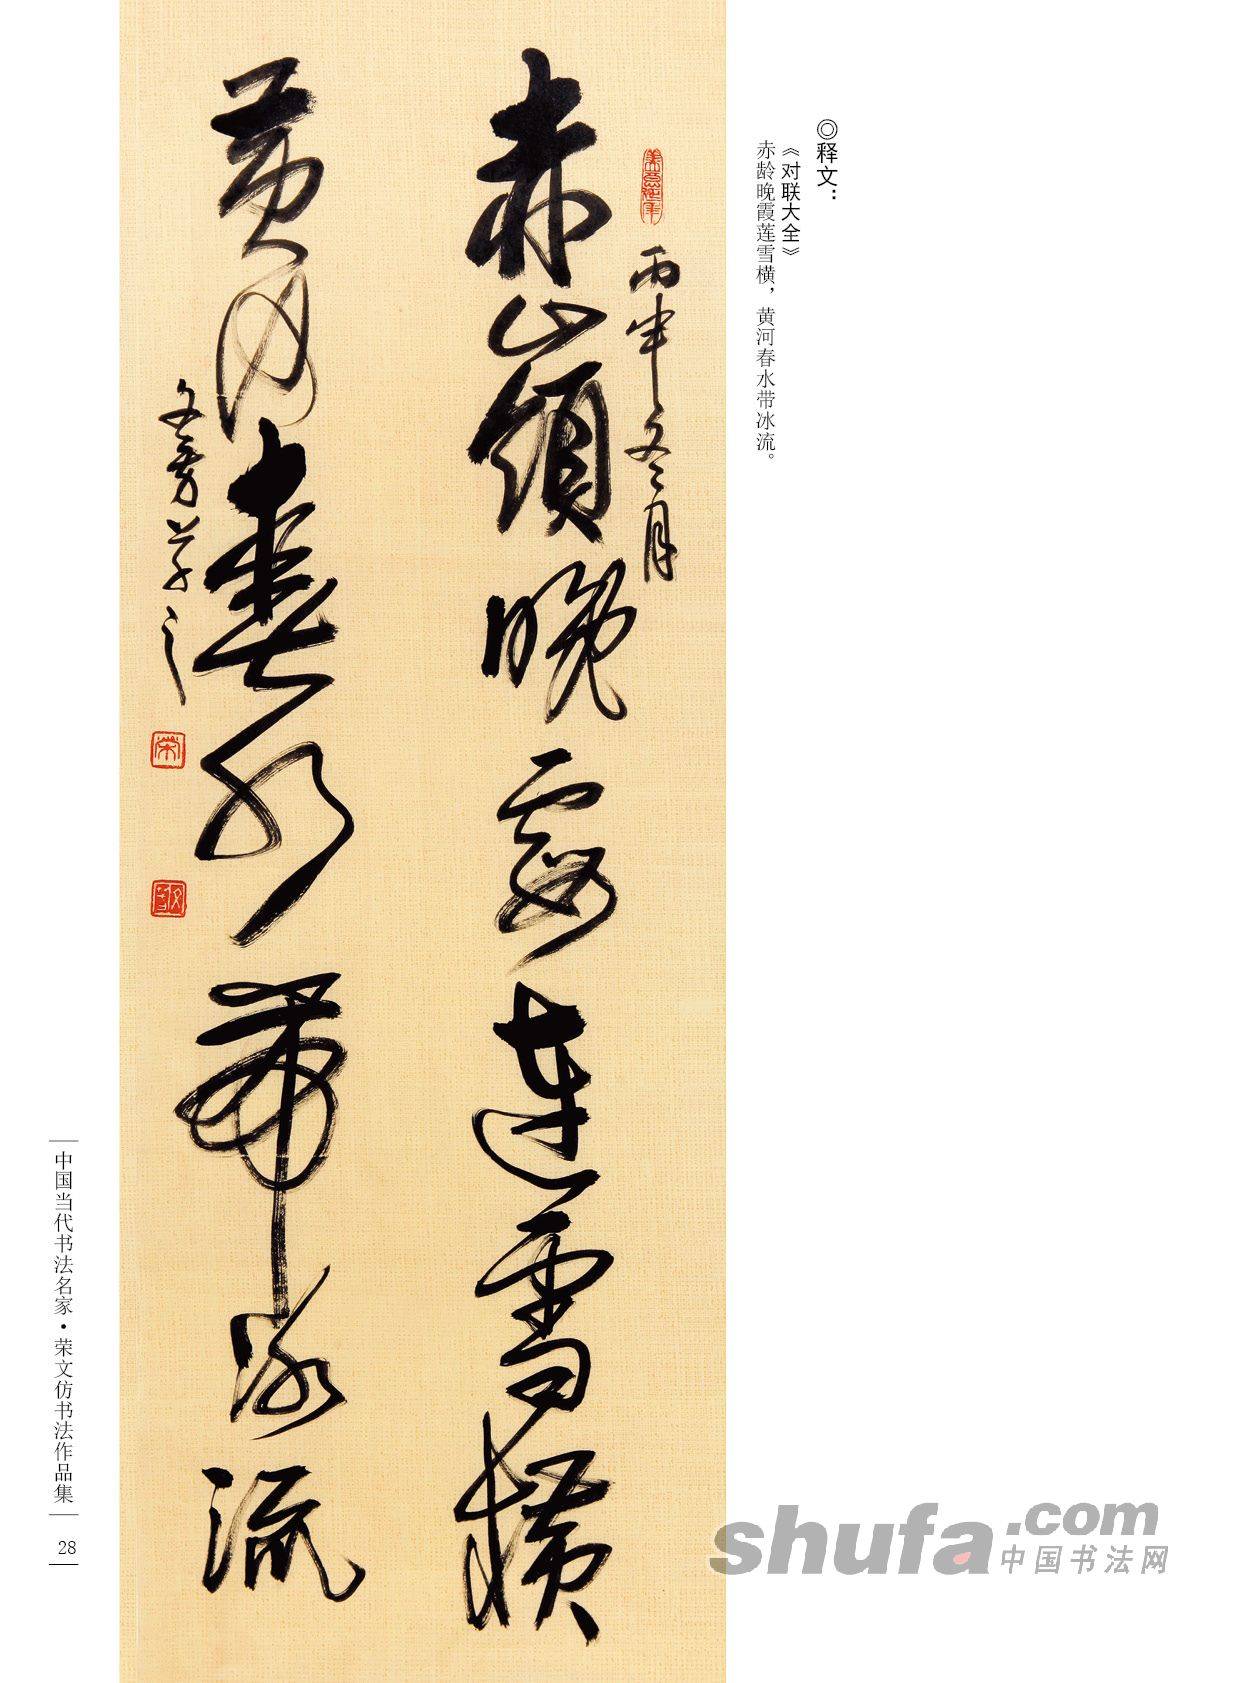 ◎释文：
《对联大全》
赤龄晚霞莲雪横，黄河春水带冰流。
丙申冬月
赤嶺晚霞連雪横
黄河春水帶冰流
文芳草之
荣
中国当代书法名家·荣文仿书法作品集
28
shufa.com
中国书法网